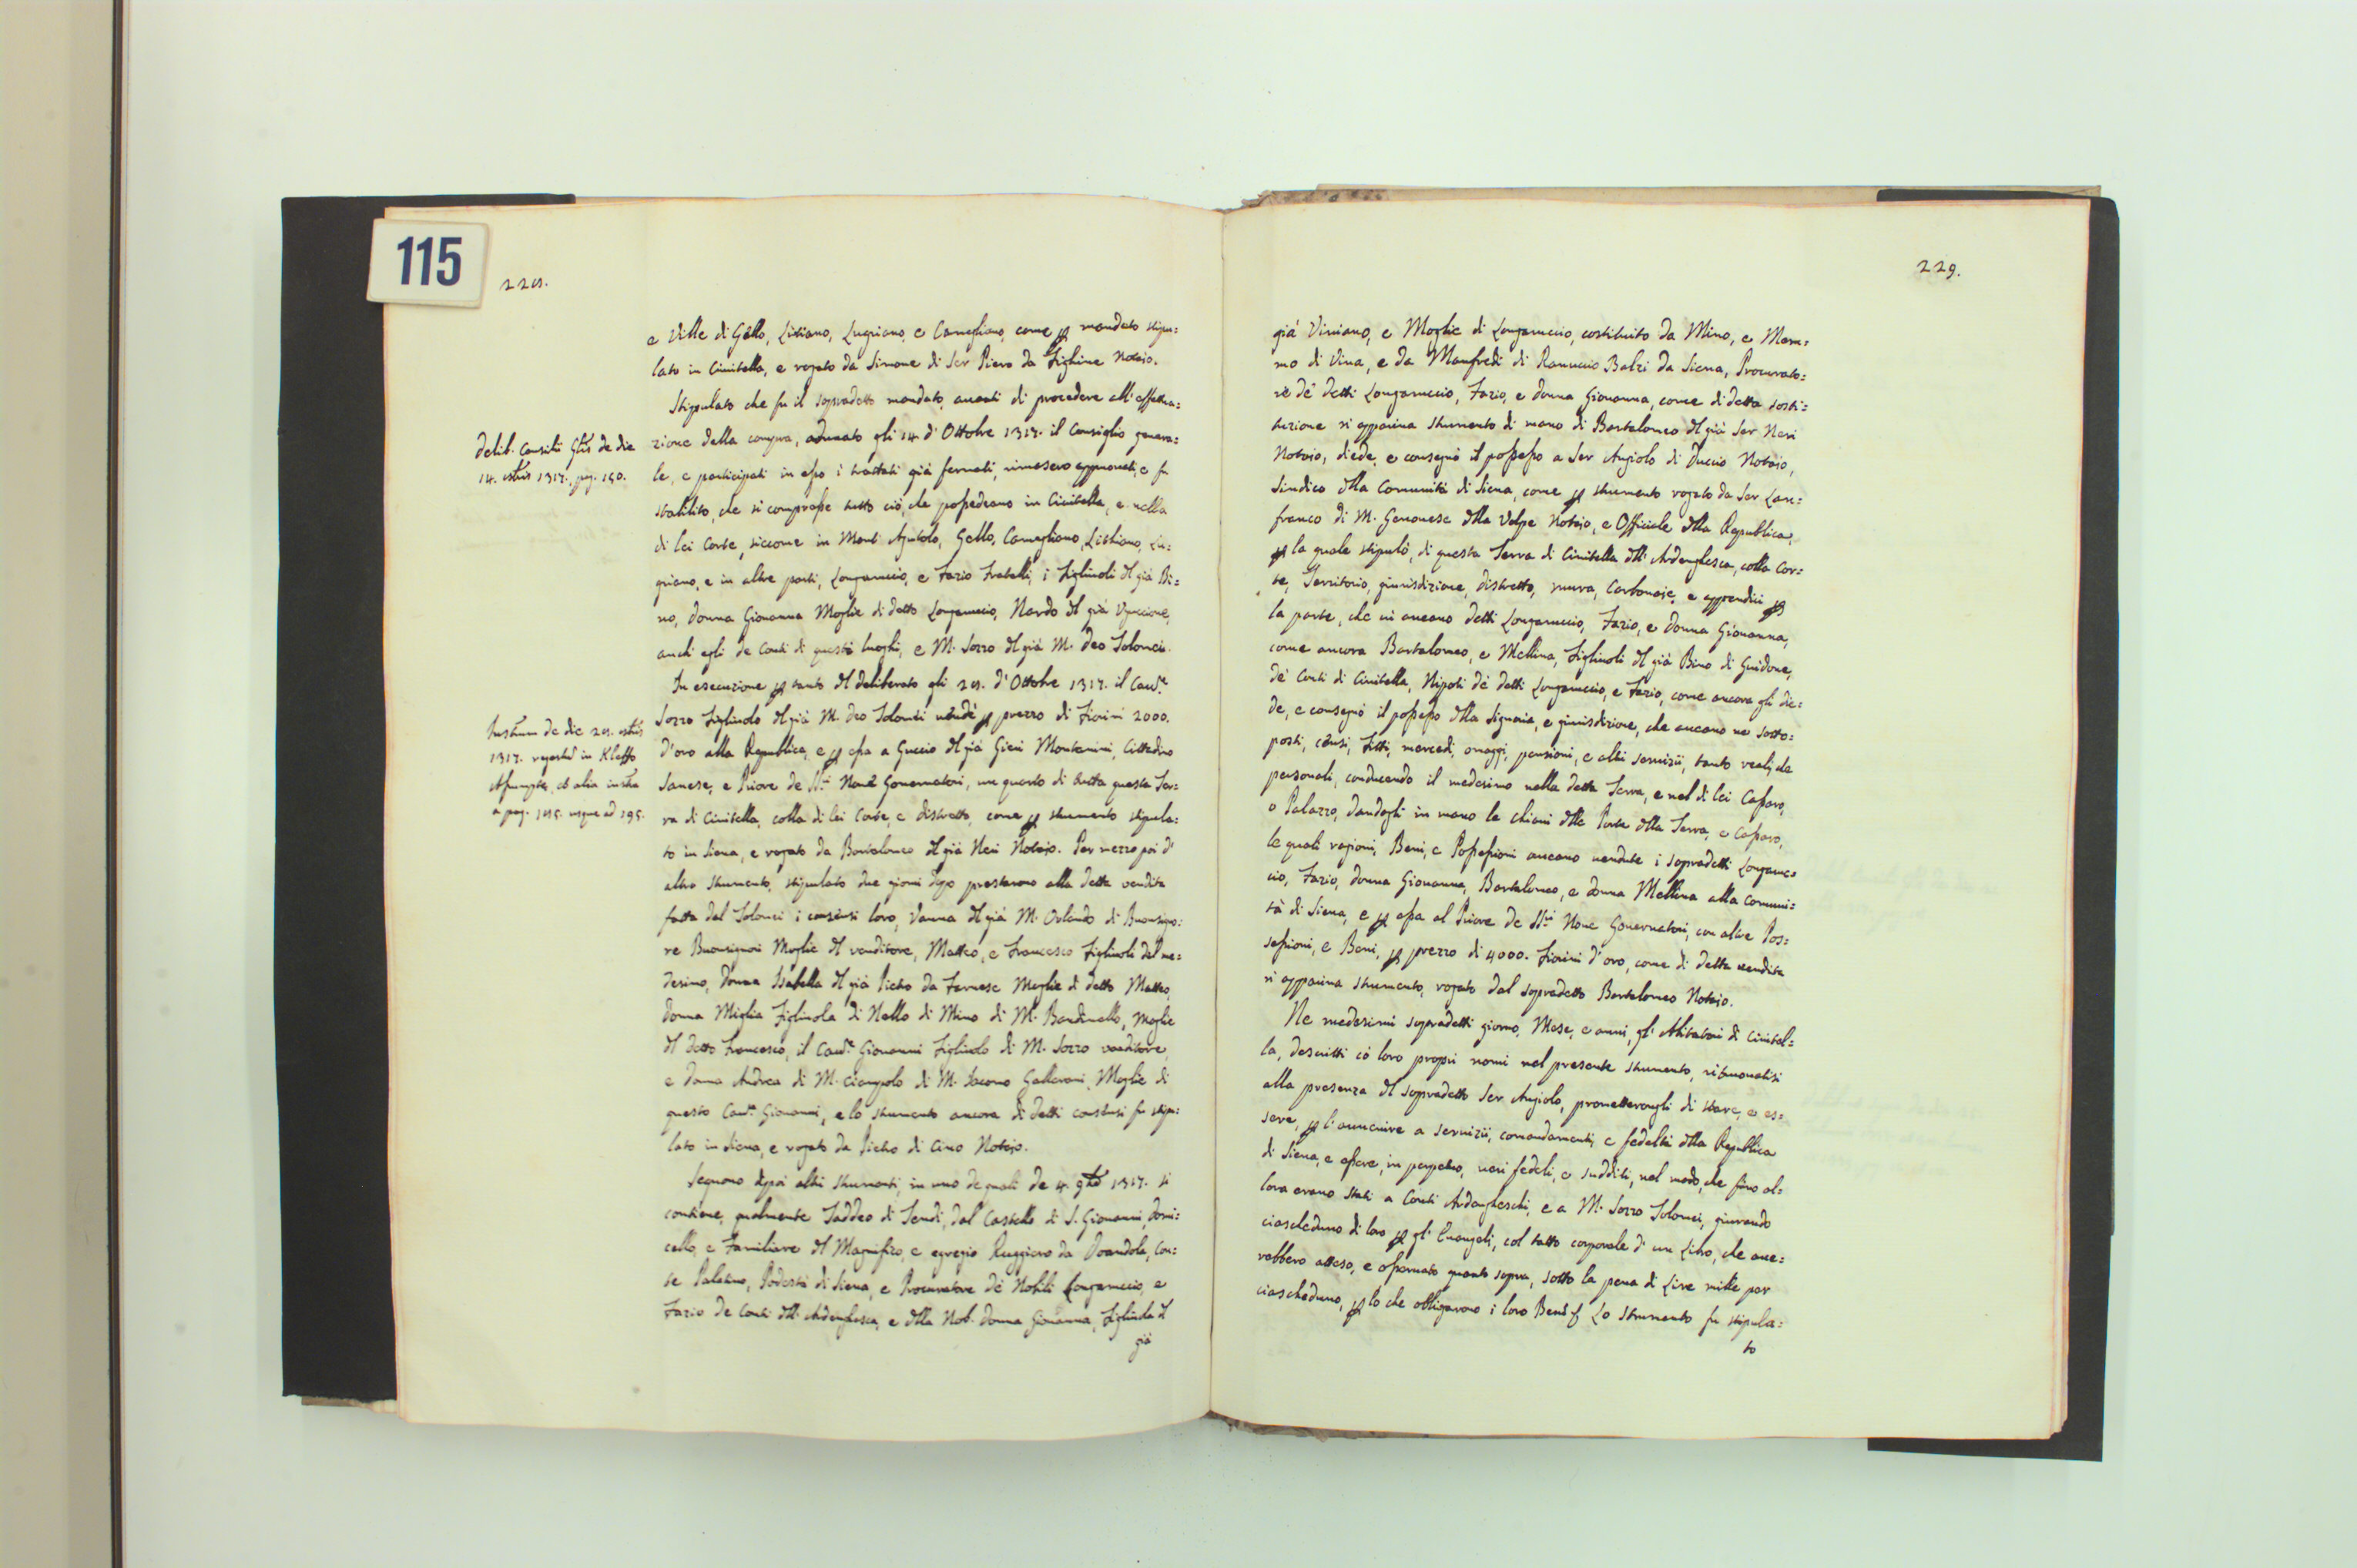 115
228.
e Ville di Gello, Litiano, Lugriano, e Camegliano, come p mandato stipu=
lato in Civitella, e rogato da Simone di Ser Piero da Fighine Notaio.
Stipulato che fu il sopradetto mandato, avanti di procedere all'effettua=
zione della compra, adunato gli 14. d'Ottobre 1317. il Consiglio genera=
le, e participati in esso i trattati già fermati, rimasero approvati, e fu
stabilito, che si comprasse tutto ciò, che possedeano in Civitella, e nella
di lei Corte, siccome in Mont' Agutolo, Gello, Camegliano, Litiano, Lu=
griano, e in altre parti, Longaruccio, e Fazio Fratelli, i Figliuoli dl già Bi=
no, Donna Giovanna Moglie di detto Longaruccio, Nardo dl già Uguccione,
anch' egli de Conti di questi luoghi, e M. Sozzo dl già M. Deo Tolomei.
In esecuzione p tanto dl deliberato gli 28. d'Ottobre 1317. il Cav.e
Sozzo Figliuolo dl già M. Deo Tolomei vendè p prezzo di Fiorini 2000.
d'oro alla Republica, e p essa a Guccio dl già Gieri Montanini, Cittadino
Sanese, e Priore de SS.ri Nove Governatori, un quarto di tutta questa Ter=
ra di Civitella, colla di lei Corte, e distretto, come p strumento stipula=
to in Siena, e rogato da Bartolomeo dl già Neri Notaio. Per mezzo poi d'
altro strumento, stipulato due giorni dopo prestarono alla detta vendita
fatta dal Tolomei i consensi loro, Vanna dl già M. Orlando di Buonsigno=
re Buonsignori Moglie dl venditore, Matteo, e Francesco Figliuoli del me=
desimo, Donna Isabella dl già Pietro da Farnese Moglie di detto Matteo,
Donna Miglia Figliuola di Nello di Mino di M. Bandinello, Moglie
dl detto Francesco, il Cav.e Giovanni Figliuolo di M. Sozzo venditore,
e Donna Andrea di M. Ciampolo di M. Iacomo Gallerani, Moglie di
questo Cav.e Giovanni, e lo strumento ancora di detti consensi fu stipu=
lato in Siena, e rogato da Pietro di Cino Notaio.
Seguono dipoi altri strumenti, in uno de quali de 4. 9bre 1317. si
contiene, qualmente Taddeo di Tendi, dal Castello di S. Giovanni, Domi=
cello, e Familiare dl Magnifico, e egregio Ruggiero da Doandola, Con=
te Palatino, Podestà di Siena, e Procuratore dè Nobili Longaruccio, e
Fazio de Conti dll' Ardenghesca, e dlla Nob. Donna Giovanna, Figliuola dl
già
Delib. Consilii Gtis de die
14. 8bris 1317. pag. 150.
Instrum de die 28. 8bris
1317. in Kleffo
ab alia
a pag. 188. usque ad 195.
229.
già Viviano, e Moglie di Longaruccio, costituito da Mino, e Mem=
mo di Vina, e da Manfredi di Ranuccio Balzi da Siena, Procurato=
ri dè detti Longaruccio, Fazio, e Donna Giovanna, come di detta costi=
tuzione si appariva strumento di mano di Bartolomeo dl già Ser Neri
Notaio, diede, e consegnò il possesso a Ser Angiolo di Duccio Notaio,
Sindico dlla Comunità di Siena, come p strumento rogato da Ser Lan=
franco di M. Genovese dlla Volpe Notaio, e Officiale dlla Republica,
p la quale stipulò, di questa Terra di Civitella dll' Ardenghesca, colla Cor=
te, Territorio, giurisdizione, distretto, mura, Carbonaie, e appendici p
la parte, che vi aveano detti Longaruccio, Fazio, e Donna Giovanna,
come ancora Bartolomeo, e Mellina, Figliuoli dl già Bino di Guidone,
dè Conti di Civitella, Nipoti dè detti Longaruccio, e Fazio, come ancora gli die=
de, e consegnò il possesso dlla Signoria, e giurisdizione, che aveano ne sotto=
posti, censi, Fitti, mercedi, omaggi, pensioni, e altri servizii, tanto reali, che
personali, conducendo il medesimo nella detta Terra, e nel di lei Cassaro,
o Palazzo, dandogli in mano le chiavi dlle Porte dlla Terra, e Cassaro,
le quali ragioni, Beni, e Possessioni aveano vendute i sopradetti Longaruc=
cio, Fazio, Donna Giovanna, Bartolomeo, e Donna Mellina alla Comuni=
tà di Siena, e p essa al Priore de SS.ri Nove Governatori, con altre Pos=
sessioni, e Beni, p prezzo di 4000. Fiorini d'oro, come di detta vendita
si appariva strumento, rogato dal sopradetto Bartolomeo Notaio.
Ne medesimi sopradetti giorno, Mese, e anni, gl' Abitatori di Civitel=
la, descritti cò loro proprii nomi nel presente strumento, ritrovatisi
alla presenza dl sopradetto Ser Angiolo, promettevangli di stare, e es=
sere, p l'avvenire a servizii, comandamenti, e fedeltà dlla Republica
di Siena, e essere, in perpetuo, veri fedeli, e sudditi, nel modo, che fino al=
lora erano stati a Conti Ardengheschi, e a M. Sozzo Tolomei, giurando
ciascheduno di loro p gl' Evangeli, col tatto corporale d' un Libro, che ave=
rebbero atteso, e osservato quanto sopra, sotto la pena di Lire mille per
ciascheduno, p lo che obligarono i loro Beni Lo strumento fu stipula=
to